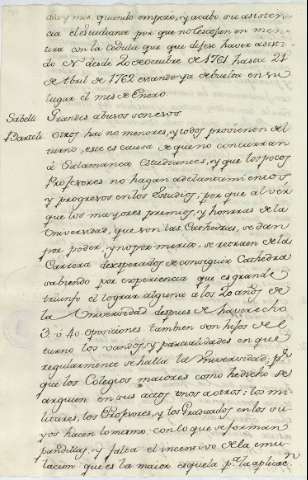 dia y mes quando empezó, y acabo su asisten-
cia el estudiante por que no les cojan en men-
tira con la cedula que
do N. desde 20 de octubre de 1761 hasta 21
de Abril de 1762 estando ya de buelta en su
lugar el mes de Enero
Grandes abusos son esos
otros hai no menores, y todos provienen del
turno, este es causa de que no concurran
à Salamanca Estudiantes, y que los pocos
Profesores no hagan adelantamientos
y progresos en los Estudios; por que al ver
que los mayores premios, y honras de la
Universidad, que son las Cathedras, se dan
por poder, y no por merito, se retraen de la
Carrera desesperados de conseguir Cathedra
sabiendo por experiencia que es grande
triunfo el lograr alguna a los 20 años de
la Universidad despues de haver echo
3 ó 40 oposiciones tambien son hijos de el
turno los vandos, y parcialidades en que
regularmente se halla la Universidad; pr.
que los Colegios maiores como he dicho se
arguien en sus actos unos a otros; los mi-
litares, los Profesores, y los Graduados en los su-
yos hacen lo mismo con lo que se forman
pandillas, y falta el incentivo de la emu-
lacion que es la maior espuela pa. la aplicacn.